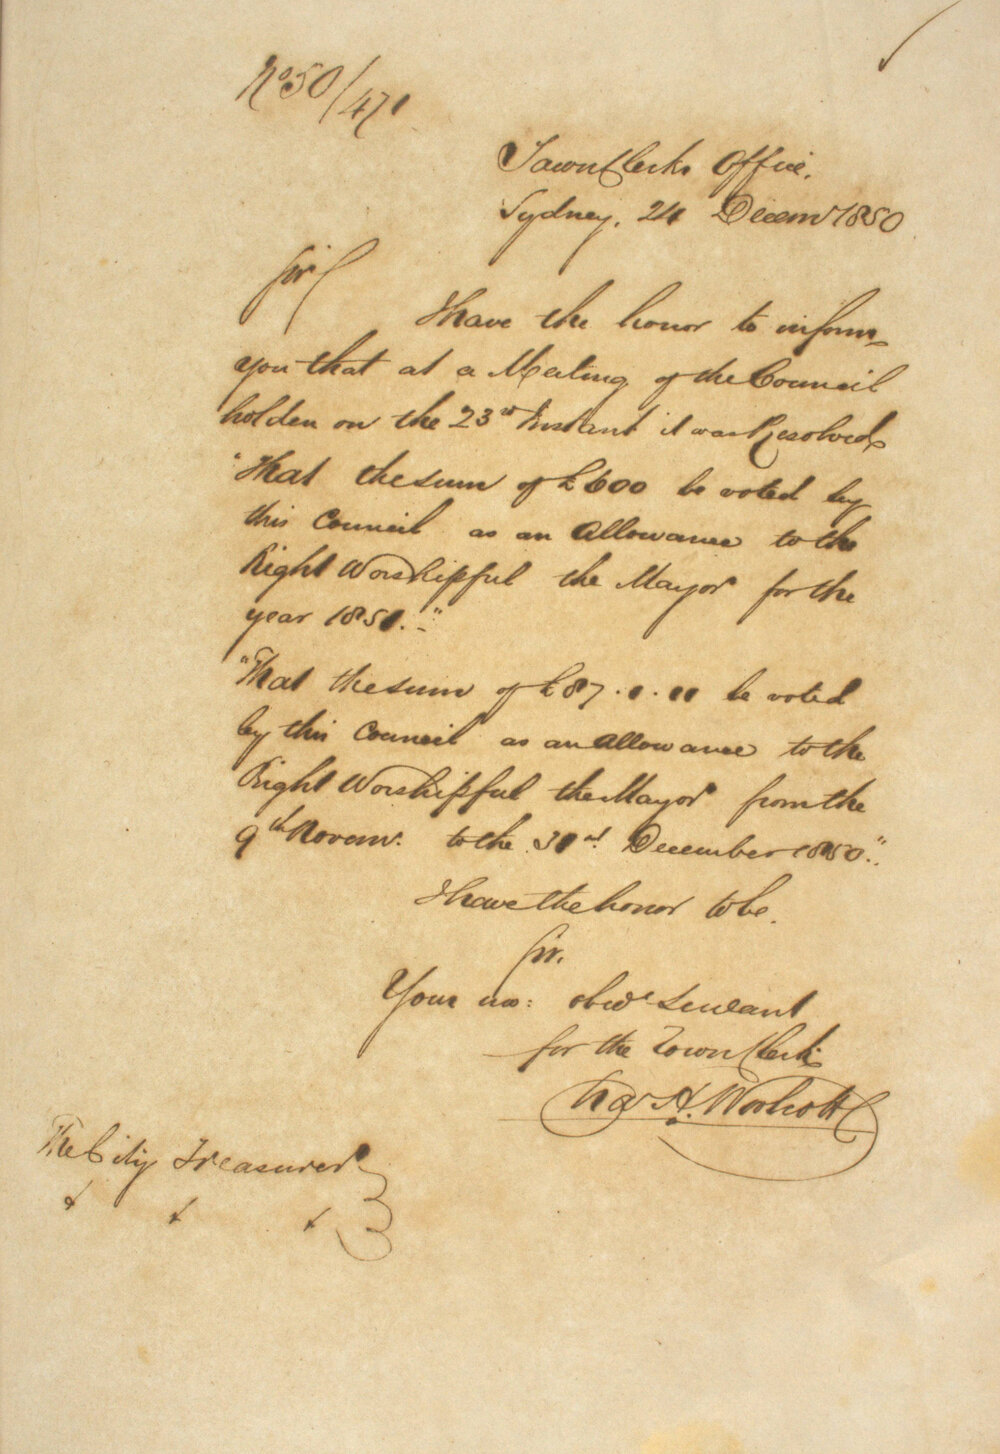 No 50/471
Town Clerks Office.
Sydney. 24 Decemr 1850
Sir
I have the honor to inform
you that at a Meeting of the Council
holden on the 23rd Instant it was Resolved
"That the sum of £600 be voted by
this Council as an Allowance to the
Right Worshipful the Mayor for the
year 1851."
"That the sum of £87.1.11 be voted
by this Council as an Allowance to the
Right Worshipful the Mayor from the
9th Novemr. to the 31st December 1850".
I have the honor to be.
Sir.
Your mo: obedt Servant
for the Town Clerk
Chas H. Woolcott
The City Treasurer